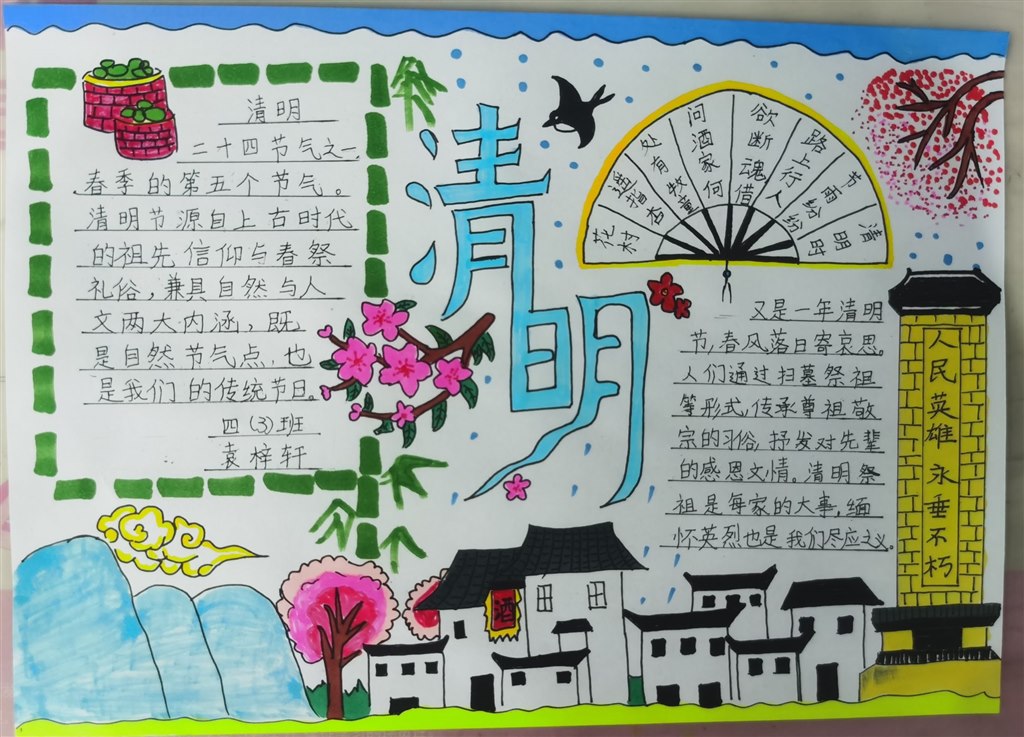 清明
二十四节气之一,
春季的第五个节气。
清明节源自上古时代
的祖先信仰与春祭
礼俗,兼具自然与人
文两大内涵,既
是自然节气点,也
是我们的传统节日。
四(3)班
袁梓轩
清明
清明时
节雨纷纷
路上行人
欲断魂借
问酒家何
处有牧童
遥指杏
花村
又是一年清明
节,春风落日寄哀思。
人们通过扫墓祭祖
等形式,传承尊祖敬
宗的习俗,抒发对先辈
的感恩文情。清明祭
祖是每家的大事,缅
怀英烈也是我们尽应之义。
人民英雄永垂不朽
酒